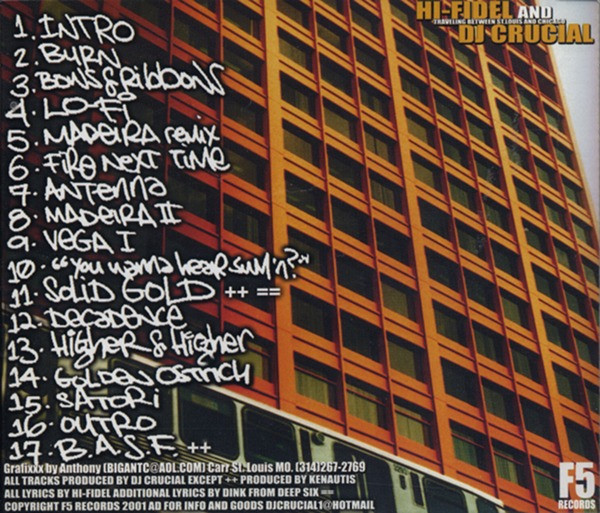 HI-FIDEL AND
TRAVELING BETWEEN ST.LOUIS AND CHICAGO
DJ CRUCIAL
1. INTRO
2. BURN
3. BOWS & RIBBONS
4. LO-FI
5. MADEIRA remix
6. FIRE NEXT TIME
7. ANTENNA
8. MADEIRA II
9. VEGA I
10. "YOU wanna hear sum'n?"
11. SOLID GOLD ++ ==
12. Decadence
13. Higher & Higher
14. GOLDEN OSTRICH
15. SATORI
16. OUTRO
17. B.A.S.F. ++
Grafixxx by Anthony (BIGANTC@AOL.COM) Carr St. Louis MO. (314)267-2769
ALL TRACKS PRODUCED BY DJ CRUCIAL EXCEPT ++ PRODUCED BY KENAUTIS
ALL LYRICS BY HI-FIDEL ADDITIONAL LYRICS BY DINK FROM DEEP SIX ==
COPYRIGHT F5 RECORDS 2001 AD FOR INFO AND GOODS DJCRUCIAL1@HOTMAIL
F5
RECORDS